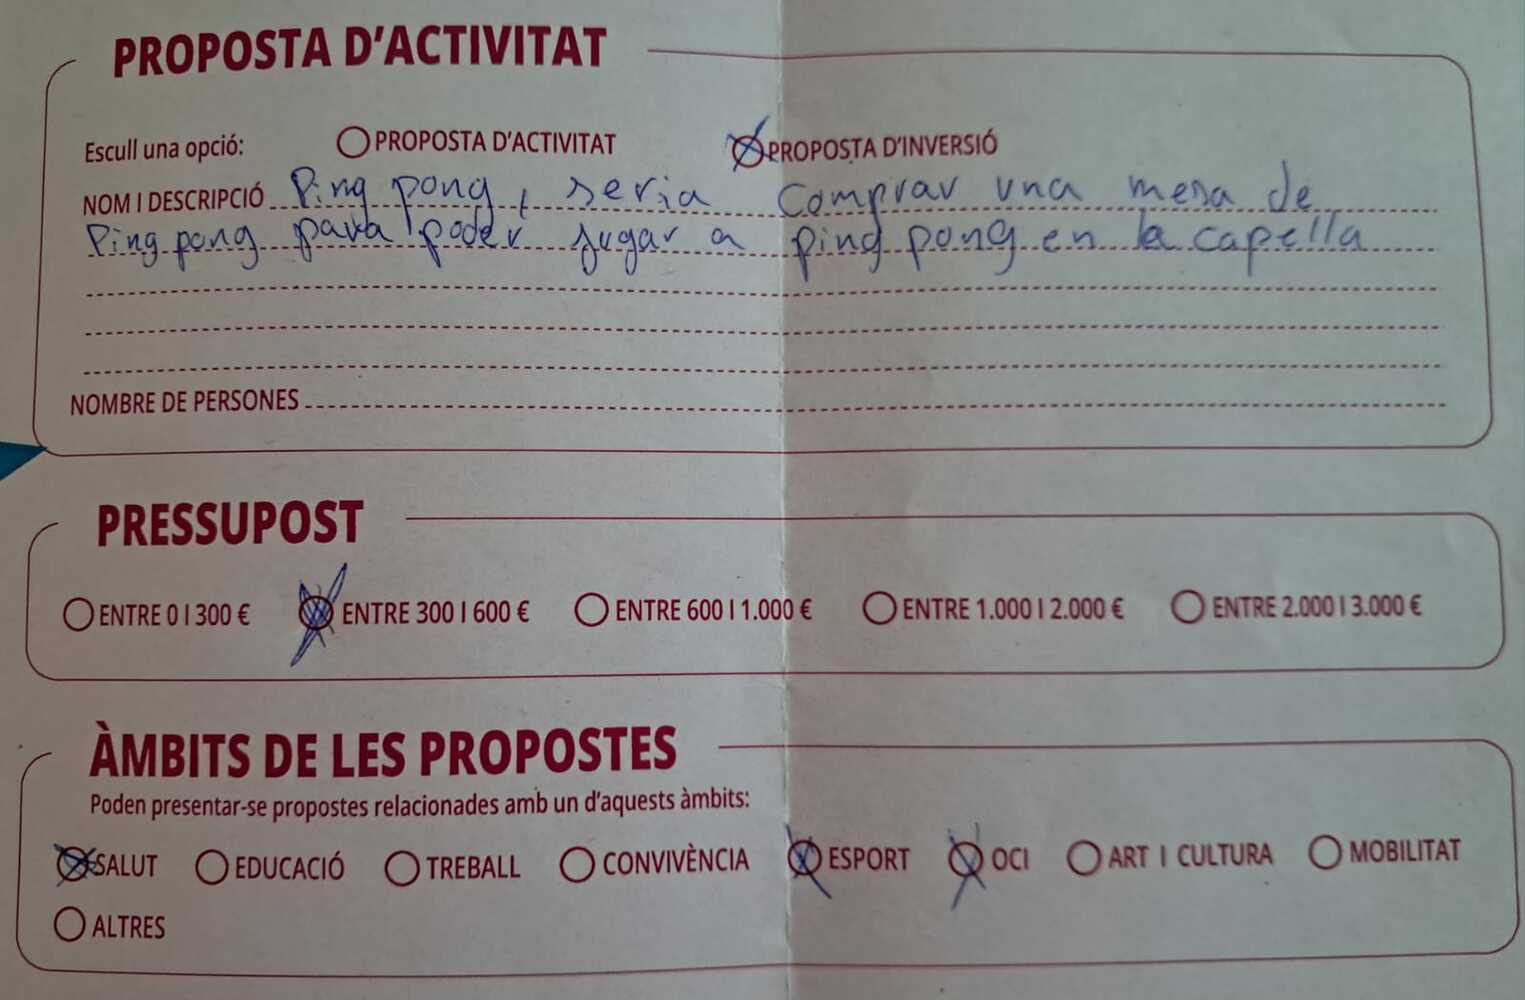 PROPOSTA D'ACTIVITAT
Escull una opció: PROPOSTA D'ACTIVITAT PROPOSTA D'INVERSIÓ
NOM I DESCRIPCIÓ Ping pong, seria comprar una mesa de
Ping pong para poder jugar a ping pong en la capella
NOMBRE DE PERSONES
PRESSUPOST
ENTRE 0 I 300 € ENTRE 300 I 600 € ENTRE 600 I 1.000 € ENTRE 1.000 I 2.000 € ENTRE 2.000 I 3.000 €
ÀMBITS DE LES PROPOSTES
Poden presentar-se propostes relacionades amb un d'aquests àmbits:
SALUT EDUCACIÓ TREBALL CONVIVÈNCIA ESPORT OCI ART I CULTURA MOBILITAT
ALTRES